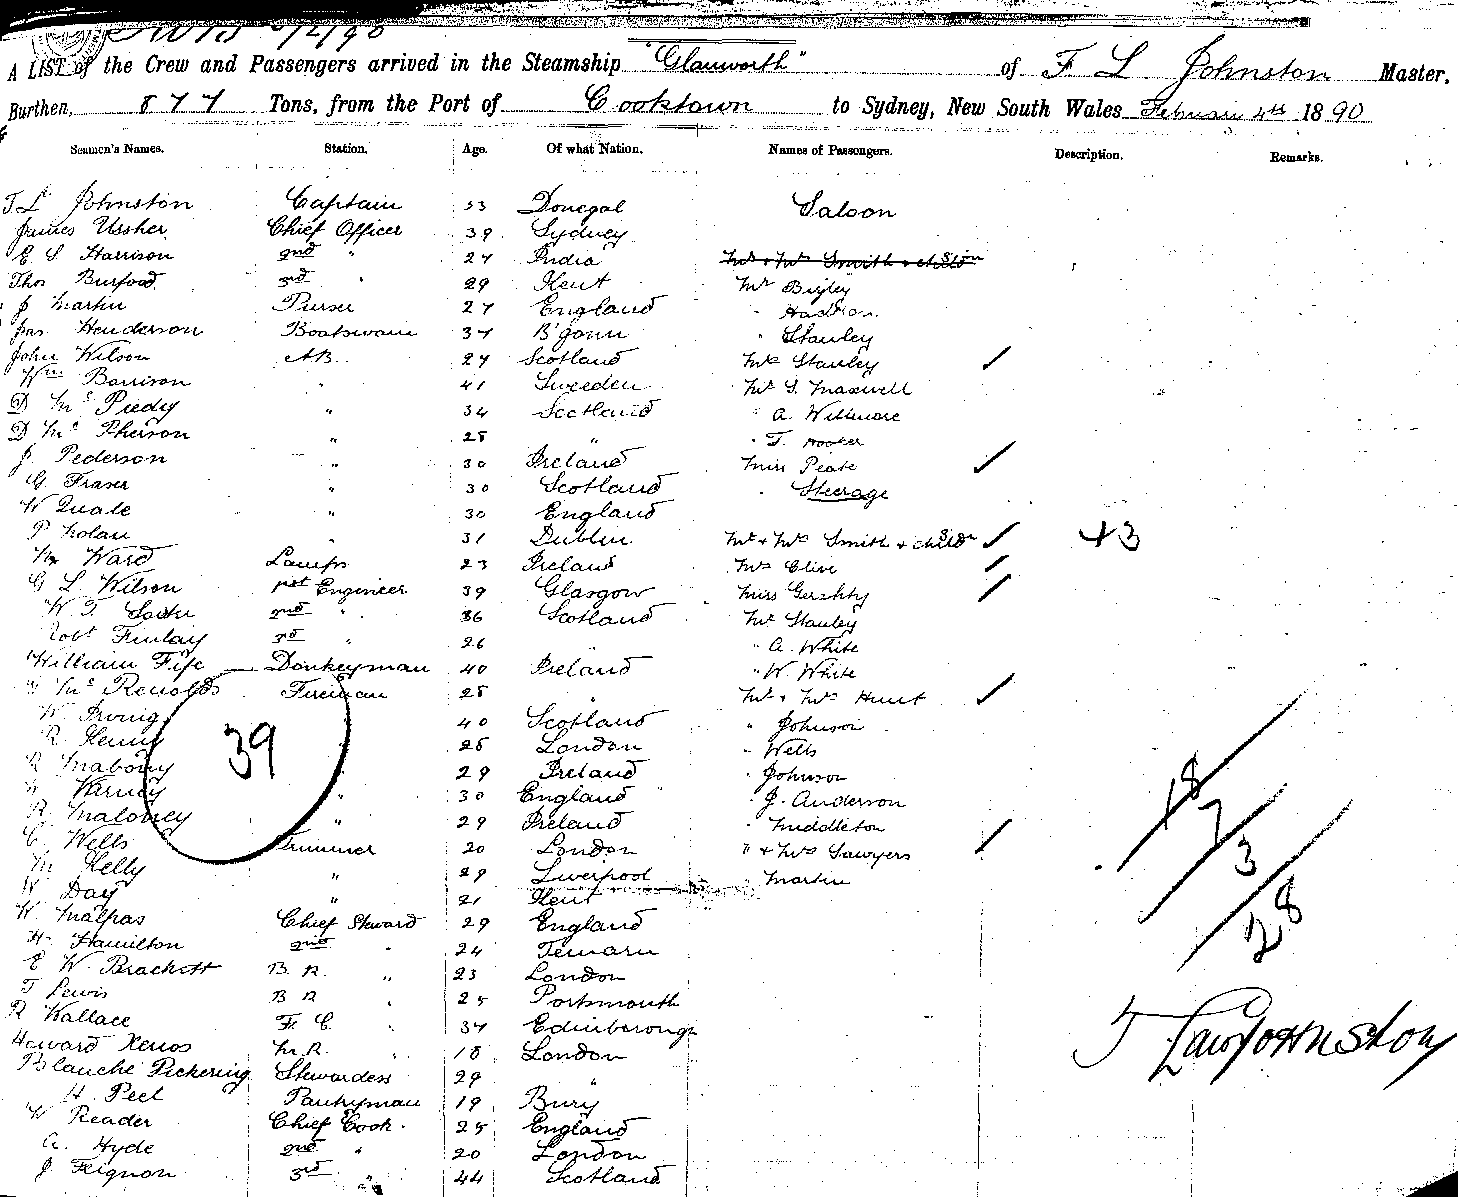 A LIST of the Crew and Passengers arrived in the Steamship "Glanworth" of F L Johnston Master,
Burthen, 877 Tons, from the Port of Cooktown to Sydney, New South Wales February 4th 1890
Seamen's Names. Station. Age. Of what Nation. Names of Passengers. Description. Remarks.
Johnston Captain 53 Donegal Saloon
James Ussher Chief Officer 39 Sydney
E S Harrison 2nd " 27 India Mr & Mrs Smith & child
Thos Burford 3rd " 29 Kent Mr Bigley
J Martin Purser 27 England "
Jas Henderson Boatswain 37 " Stanley
John Wilson AB 27 Scotland Mrs Stanley
Wm Barrison " 41 Sweeden Mr S. Maxwell
D Mc Predy " 34 Scotland " A. Willmore
D Mc Pherson " 28 " " T. Hooker
J. Pederson " 30 Ireland Miss Peate
G. Fraser " 30 Scotland Steerage
W Quale " 30 England
P Nolan " 31 Dublin Mr & Mrs Smith & child +3
Ward Lamps 23 Ireland Mrs Clive
G L Wilson 1st Engineer 39 Glasgow Miss Gerahty
W. T. 2nd " 36 Scotland Mr Stanley
Robt Finlay 3rd " 26 " " A. White
William Fife Donkeyman 40 Ireland " W. White
Mc Renolds Fireman 28 " Mr & Mrs Hunt
W Irving " 40 Scotland " Johnson
R. Kenny " 28 London " Wells
R Mabony " 29 Ireland " Johnson
Varney " 30 England " J. Anderson
R Maloney " 29 Ireland " Middleton
C. Wells Trimmer 20 London " & Mrs Sawyers
M Kelly " 29 Liverpool " Martin
W. Day " 21 Kent
W. Malpas Chief Steward 29 England
H. Hamilton 2nd " 24 Temaru
E W. Brachett B. R. " 23 London
T Lewis B R " 25 Portsmouth
R Wallace F. C. " 37 Edinborough
Howard Xenos M.R. " 18 London
Blanche Pickering Stewardess 29 "
H. Peet Pantryman 19 Bury
W Reader Chief Cook. 25 England
A. Hyde 2nd " 20 London
J. Feignon 3rd " 44 Scotland
39
18
7
3
28
F Law Johnston